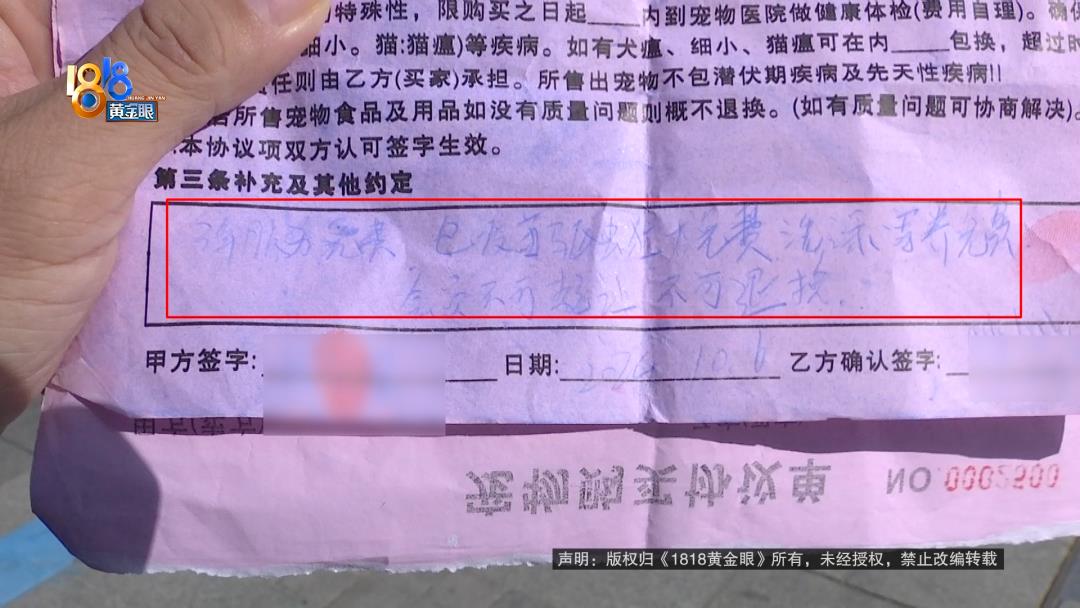 的特殊性，限购买之日起____内到宠物医院做健康体检(费用自理)。确保
细小。猫:猫瘟)等疾病。如有犬瘟、细小、猫瘟可在内_____包换，超过时
任则由乙方(买家)承担。所售出宠物不包潜伏期疾病及先天性疾病!!
所售宠物食品及用品如没有质量问题则概不退换。(如有质量问题可协商解决)。
本协议项双方认可签字生效。
第三条补充及其他约定
包疫苗驱虫 免费 洗澡 寄养免费
会员不可转让 不可退换.
甲方签字: 日期: 10.6 乙方确认签字:
宠物购买协议单 NO.0002500
1818
HUANG JIN YAN
黄金眼
声明：版权归《1818黄金眼》所有，未经授权，禁止改编转载